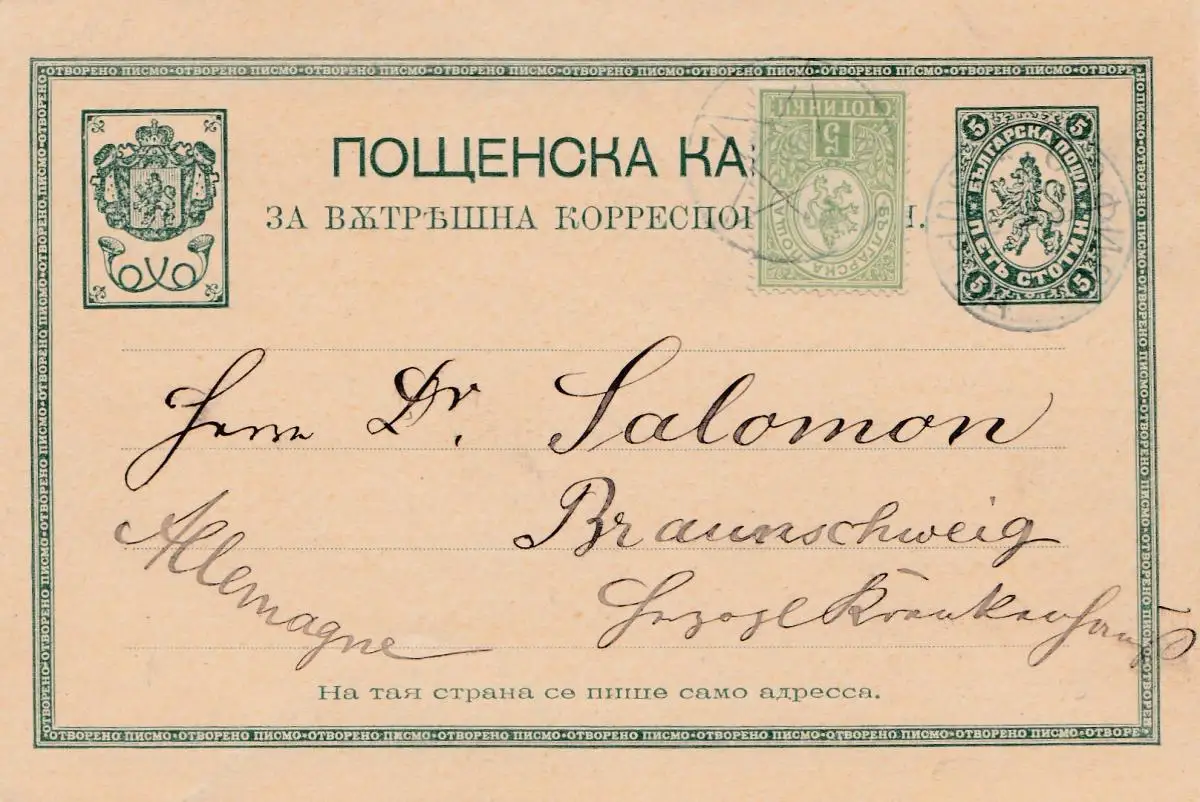 ОТВОРЕНО ПИСМО·ОТВОРЕНО ПИСМО·ОТВОРЕНО ПИСМО·ОТВОРЕНО ПИСМО·ОТВОРЕНО ПИСМО·ОТВОРЕНО ПИСМО·ОТВОРЕНО ПИСМО·ОТВОРЕНО ПИСМО·ОТВОРЕ
ПОЩЕНСКА КА
ЗА ВѪТРѢШНА КОРРЕСПО
5 СТОТИНКИ
БЪЛГАРСКА ПОЩА
5 5
БЪЛГАРСКА ПОЩА
ПЕТЬ СТОТИНКИ
5 5
Herrn Dr. Salomon
Braunschweig
Allemagne
Herzogl Krankenhaus
На тая страна се пише само адресса.
ОТВОРЕНО ПИСМО·ОТВОРЕНО ПИСМО·ОТВОРЕНО ПИСМО·ОТВОРЕНО ПИСМО·ОТВОРЕНО ПИСМО·ОТВОРЕНО ПИСМО·ОТВОРЕНО ПИСМО·ОТВОРЕНО ПИСМО·ОТВОРЕ